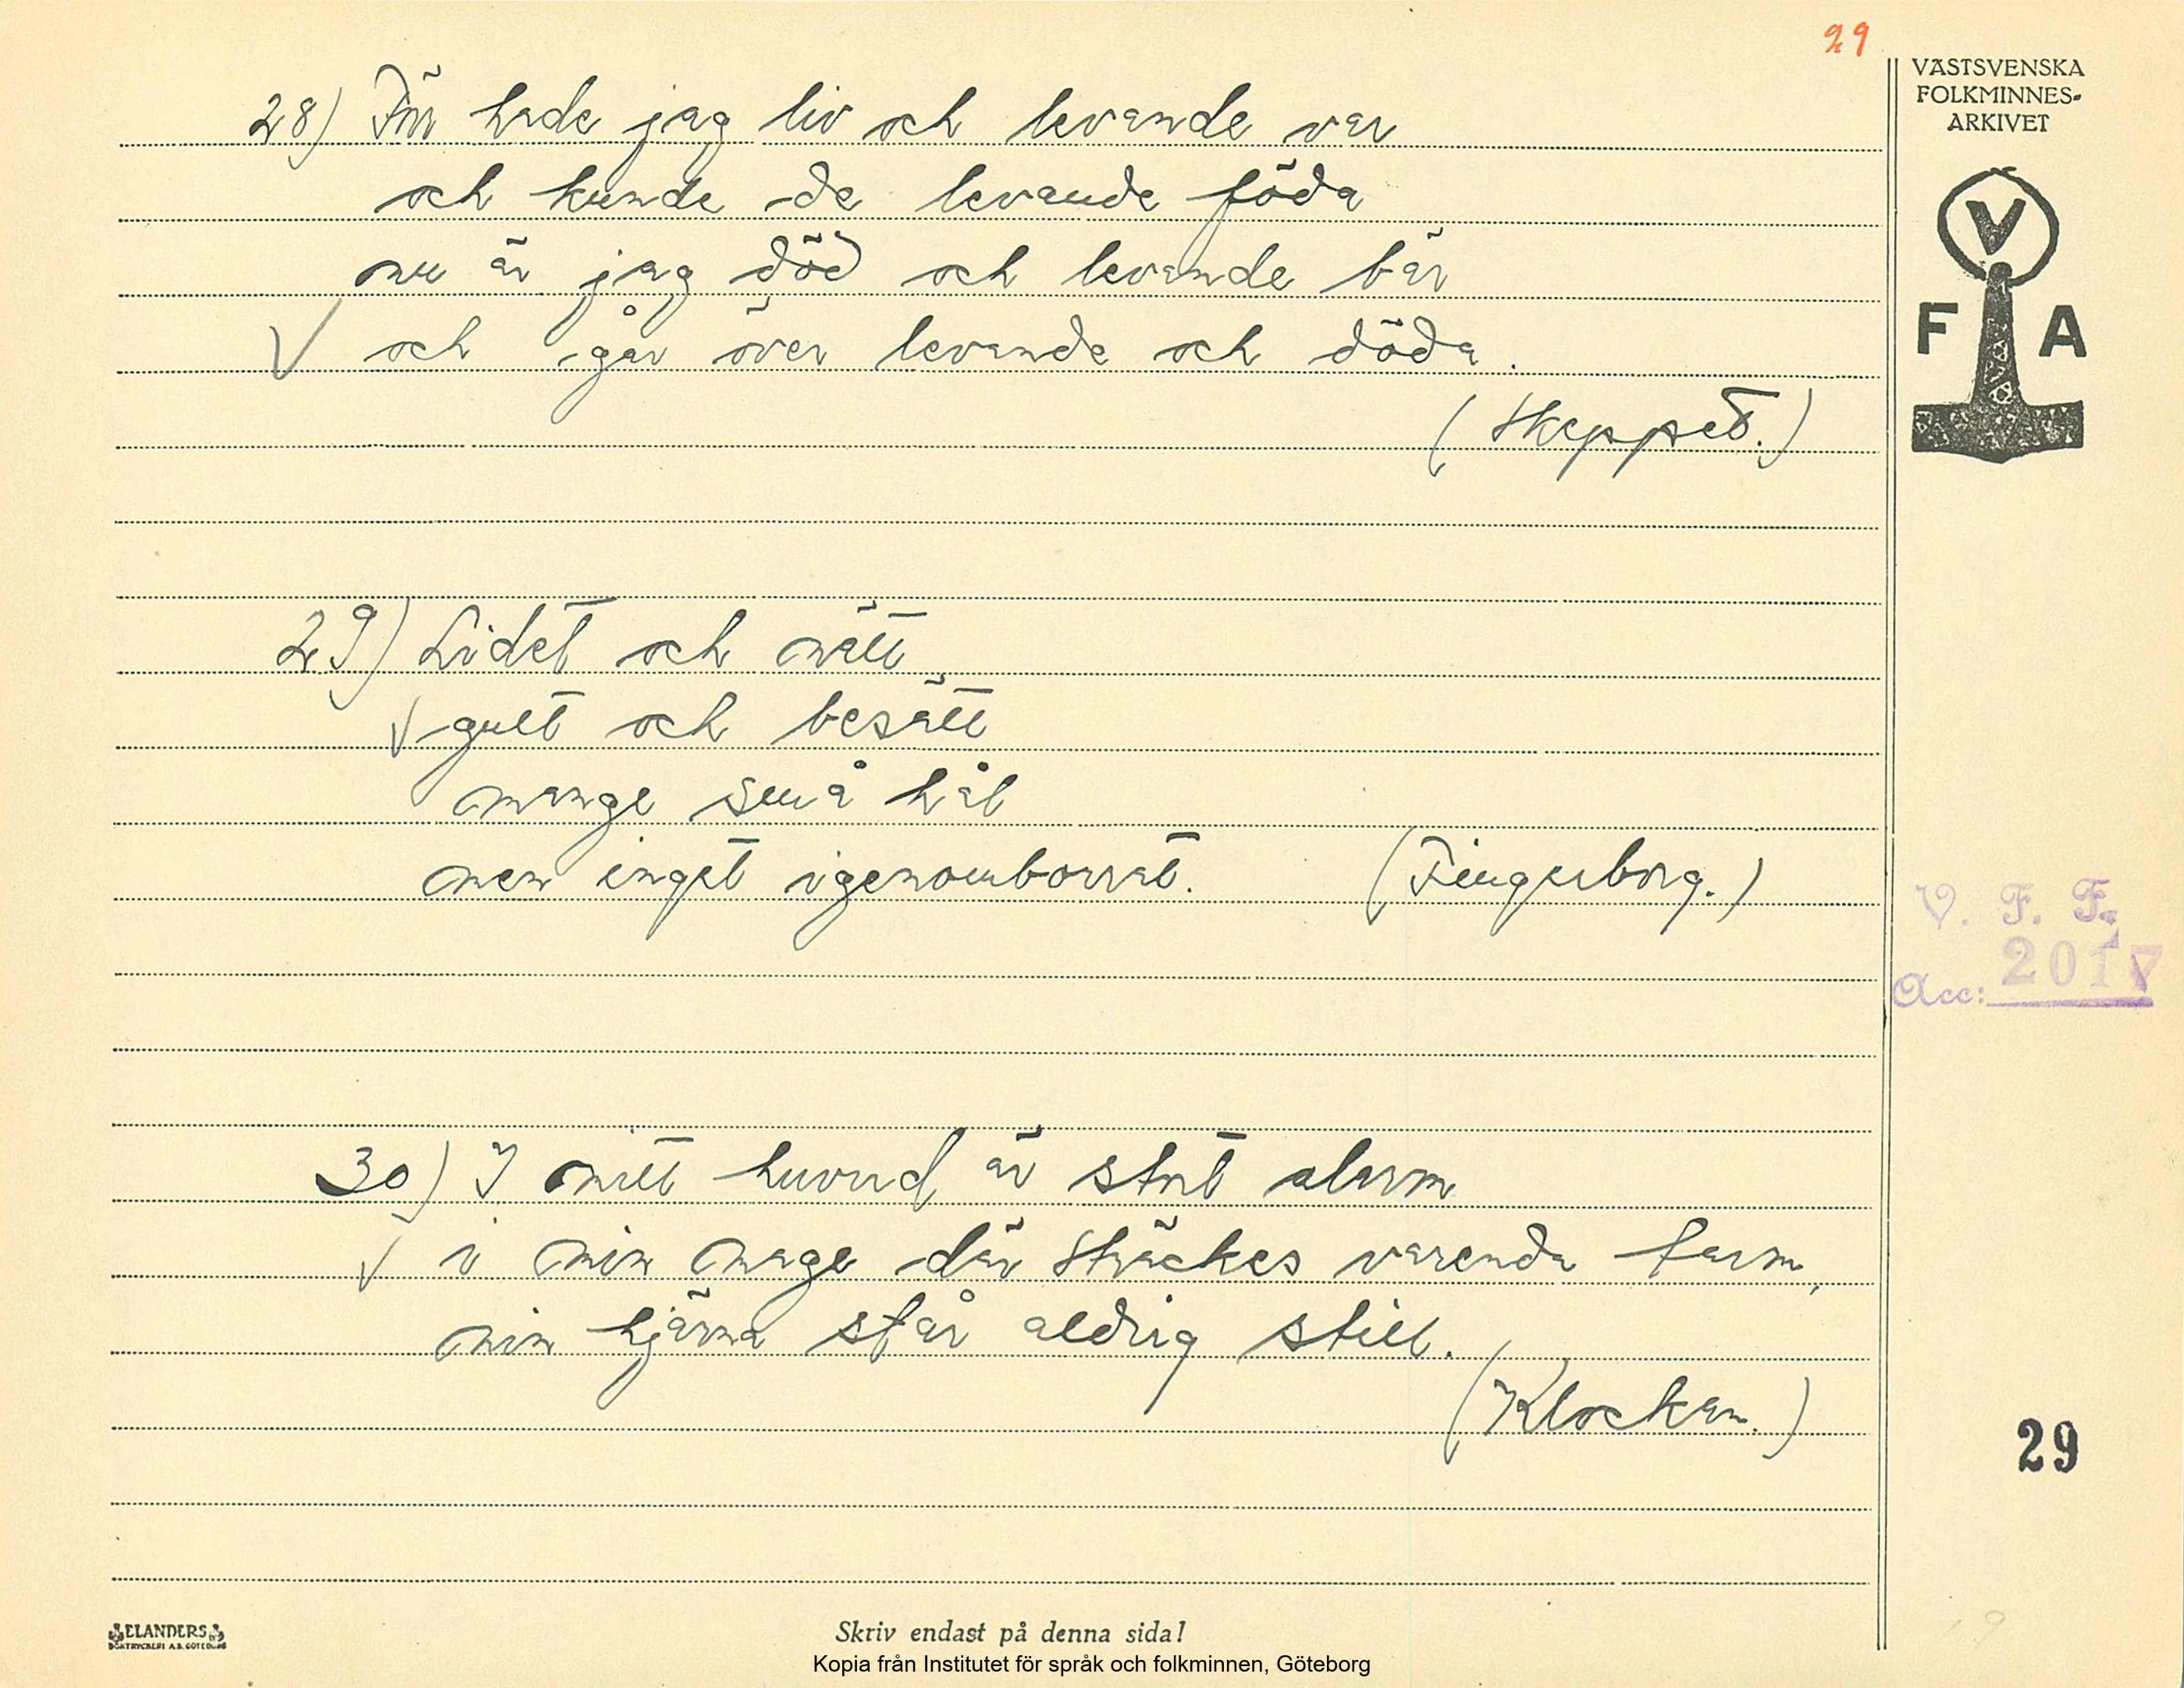 29
VÄSTSVENSKA
FOLKMINNES-
ARKIVET
V
F A
28) Förr hade jag liv och levande var
och kunde de levande föda
nu är jag död och levande bär
och går över levande och döda.
(Skeppet.)
29) Lidet och nätt
gult och besått
mange små hål
men inget igenomborrat. (Fingerborg.)
V. F. F.
Acc: 2017
30) I mitt huvud är stort alarm
i min mage där sträckes varenda tarm,
min hjärna står aldrig still.
(Klockan.)
29
ELANDERS
BOKTRYCKERI A.B. GÖTEBORG
Skriv endast på denna sida!
Kopia från Institutet för språk och folkminnen, Göteborg